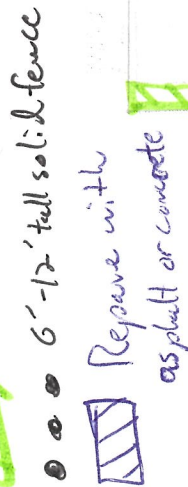 6'-12' tall solid fence
Repave with
asphalt or concrete